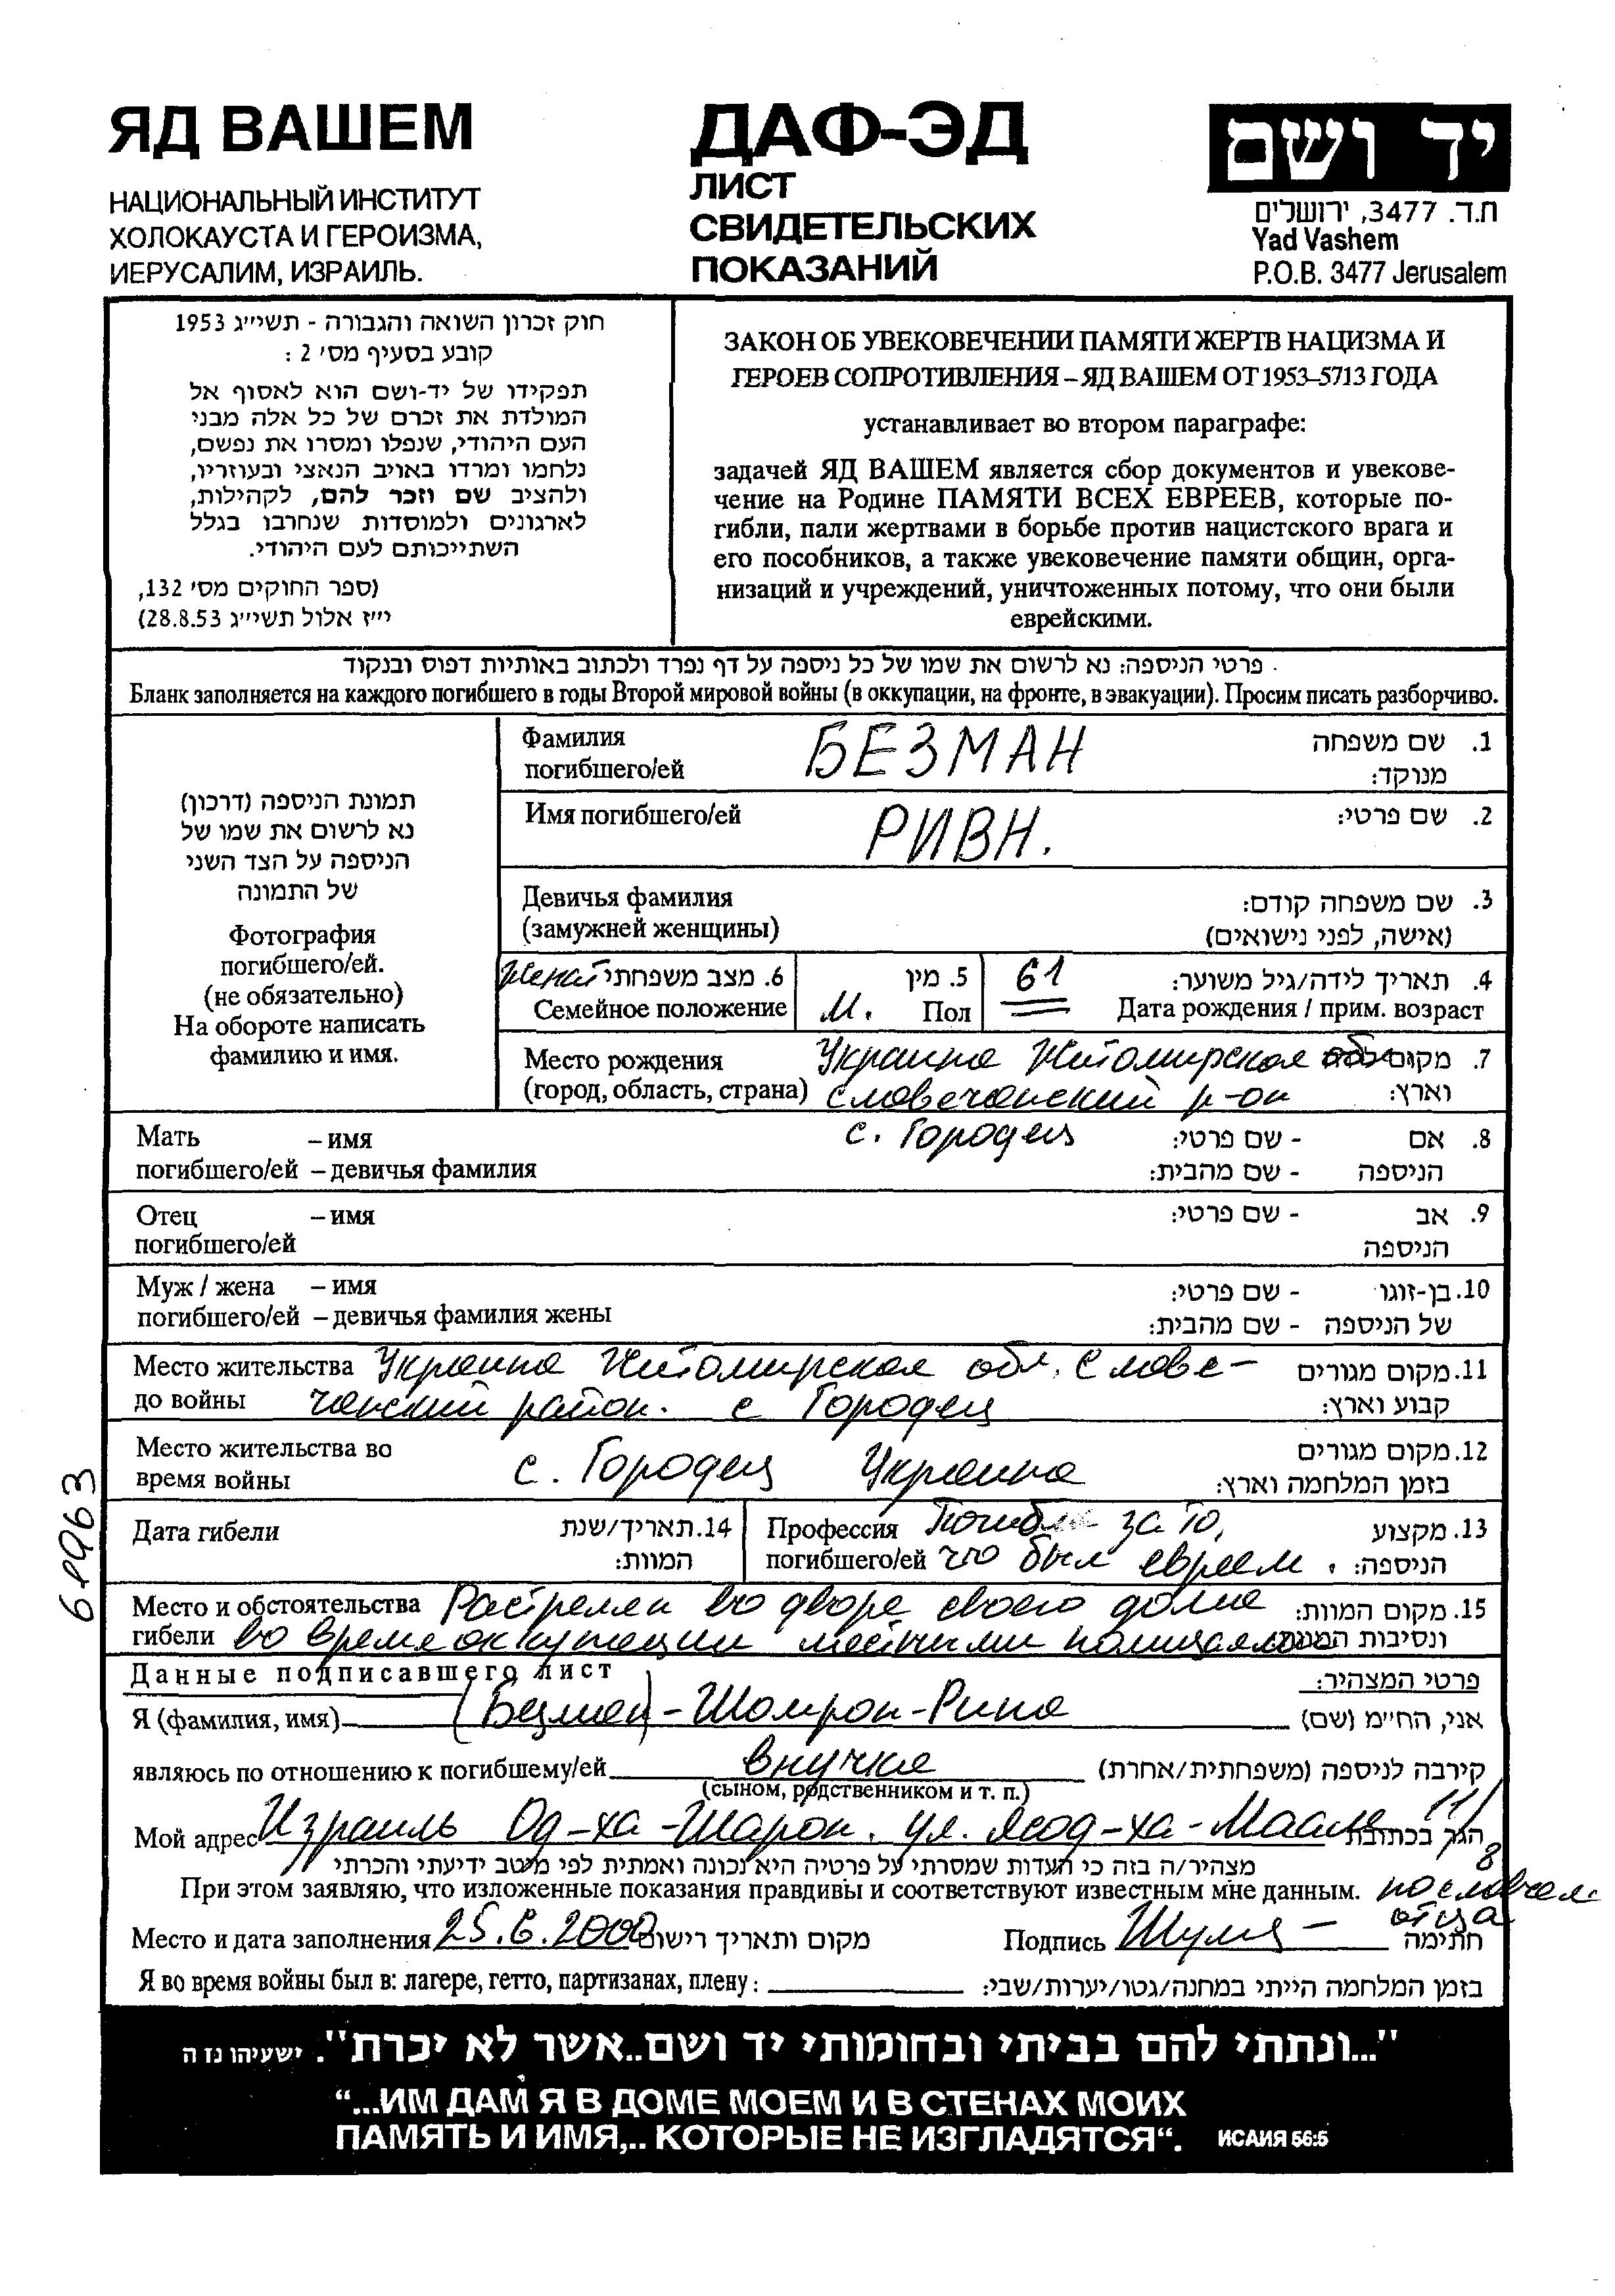 ЯД ВАШЕМ
НАЦИОНАЛЬНЫЙ ИНСТИТУТ
ХОЛОКАУСТА И ГЕРОИЗМА,
ИЕРУСАЛИМ, ИЗРАИЛЬ.
ДАФ-ЭД
ЛИСТ
СВИДЕТЕЛЬСКИХ
ПОКАЗАНИЙ
יד ושם
ת.ד. 3477, ירושלים
Yad Vashem
P.O.B. 3477 Jerusalem
חוק זכרון השואה והגבורה - תשי״ג 1953
קובע בסעיף מס׳ 2 :
תפקידו של יד-ושם הוא לאסוף אל
המולדת את זכרם של כל אלה מבני
העם היהודי, שנפלו ומסרו את נפשם,
נלחמו ומרדו באויב הנאצי ובעוזריו,
ולהציב שם וזכר להם, לקהילות,
לארגונים ולמוסדות שנחרבו בגלל
השתייכותם לעם היהודי.
(ספר החוקים מס׳ 132,
י״ז אלול תשי״ג 28.8.53)
ЗАКОН ОБ УВЕКОВЕЧЕНИИ ПАМЯТИ ЖЕРТВ НАЦИЗМА И
ГЕРОЕВ СОПРОТИВЛЕНИЯ – ЯД ВАШЕМ ОТ 1953–5713 ГОДА
устанавливает во втором параграфе:
задачей ЯД ВАШЕМ является сбор документов и увекове-
чение на Родине ПАМЯТИ ВСЕХ ЕВРЕЕВ, которые по-
гибли, пали жертвами в борьбе против нацистского врага и
его пособников, а также увековечение памяти общин, орга-
низаций и учреждений, уничтоженных потому, что они были
еврейскими.
פרטי הניספה: נא לרשום את שמו של כל ניספה על דף נפרד ולכתוב באותיות דפוס ובנקוד
Бланк заполняется на каждого погибшего в годы Второй мировой войны (в оккупации, на фронте, в эвакуации). Просим писать разборчиво.
תמונת הניספה (דרכון)
נא לרשום את שמו של
הניספה על הצד השני
של התמונה
Фотография
погибшего/ей.
(не обязательно)
На обороте написать
фамилию и имя.
Фамилия БЕЗМАН 1. שם משפחה
погибшего/ей מנוקד:
Имя погибшего/ей РИВН. 2. שם פרטי:
Девичья фамилия 3. שם משפחה קודם:
(замужней женщины) (אישה, לפני נישואים)
женат 6. מצב משפחתי 5. מין 61 4. תאריך לידה/גיל משוער:
Семейное положение М. Пол Дата рождения / прим. возраст
Место рождения Украина Житомирская обл 7. מקום
(город, область, страна) словечанский р-он וארץ:
Мать – имя с. Городец - שם פרטי: 8. אם
погибшего/ей – девичья фамилия - שם מהבית: הניספה
Отец – имя - שם פרטי: 9. אב
погибшего/ей הניספה
Муж / жена – имя - שם פרטי: 10. בן-זוגו
погибшего/ей – девичья фамилия жены - שם מהבית: של הניספה
Место жительства Украина Житомирская обл. Слове- 11. מקום מגורים
до войны чанский район. с Городец קבוע וארץ:
Место жительства во 12. מקום מגורים
время войны с. Городец Украина בזמן המלחמה וארץ:
Дата гибели 14. תאריך/שנת Профессия Погиб за то, 13. מקצוע
המוות: погибшего/ей что был евреем. הניספה:
Место и обстоятельства Растрелян во дворе своего дома 15. מקום המוות:
гибели во время оккупации местными полицаями ונסיבות המוות
Данные подписавшего лист פרטי המצהיר:
Я (фамилия, имя) (Безман)-Шомрон-Рина אני, הח״מ (שם)
являюсь по отношению к погибшему/ей внучка קירבה לניספה (משפחתית/אחרת)
(сыном, родственником и т. п.)
Мой адрес Израиль Од-ха-Шарон. ул. Йсод-ха-Маале 11/8 הגר בכתובת
מצהיר/ה בזה כי העדות שמסרתי על פרטיה היא נכונה ואמתית לפי מיטב ידיעתי והכרתי
При этом заявляю, что изложенные показания правдивы и соответствуют известным мне данным. по словам
отца
Место и дата заполнения 25.6.2000 מקום ותאריך רישום Подпись חתימה
Я во время войны был в: лагере, гетто, партизанах, плену: בזמן המלחמה הייתי במחנה/גטו/יערות/שבי:
"...ונתתי להם בביתי ובחומותי יד ושם..אשר לא יכרת". ישעיהו נז ה
“...ИМ ДАМ Я В ДОМЕ МОЕМ И В СТЕНАХ МОИХ
ПАМЯТЬ И ИМЯ,.. КОТОРЫЕ НЕ ИЗГЛАДЯТСЯ“. ИСАИЯ 56:5